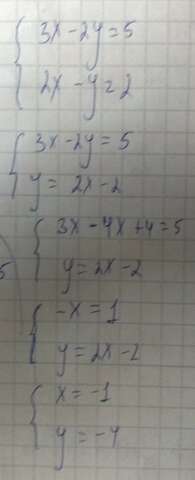 3x - 2y = 5
2x - y = 2
3x - 2y = 5
y = 2x - 2
3x - 4x + 4 = 5
y = 2x - 2
-x = 1
y = 2x - 2
x = -1
y = -4